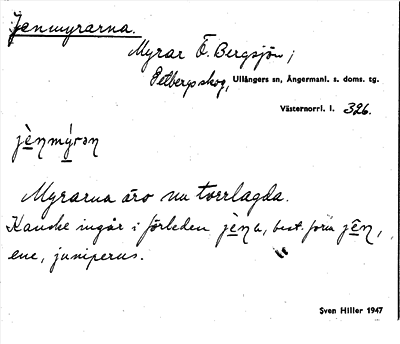 Jenmyrarna.
Myrar Ö. Bergsjön,
Petbergsskog, Ullångers sn, Ångermanl. s. doms. tg.
Västernorrl. l. 326.
jènmýrən
Myrarna äro nu torrlagda.
Kanske ingår i förleden jèna, best. form jēn,
ene, juniperus.
Sven Hiller 1947